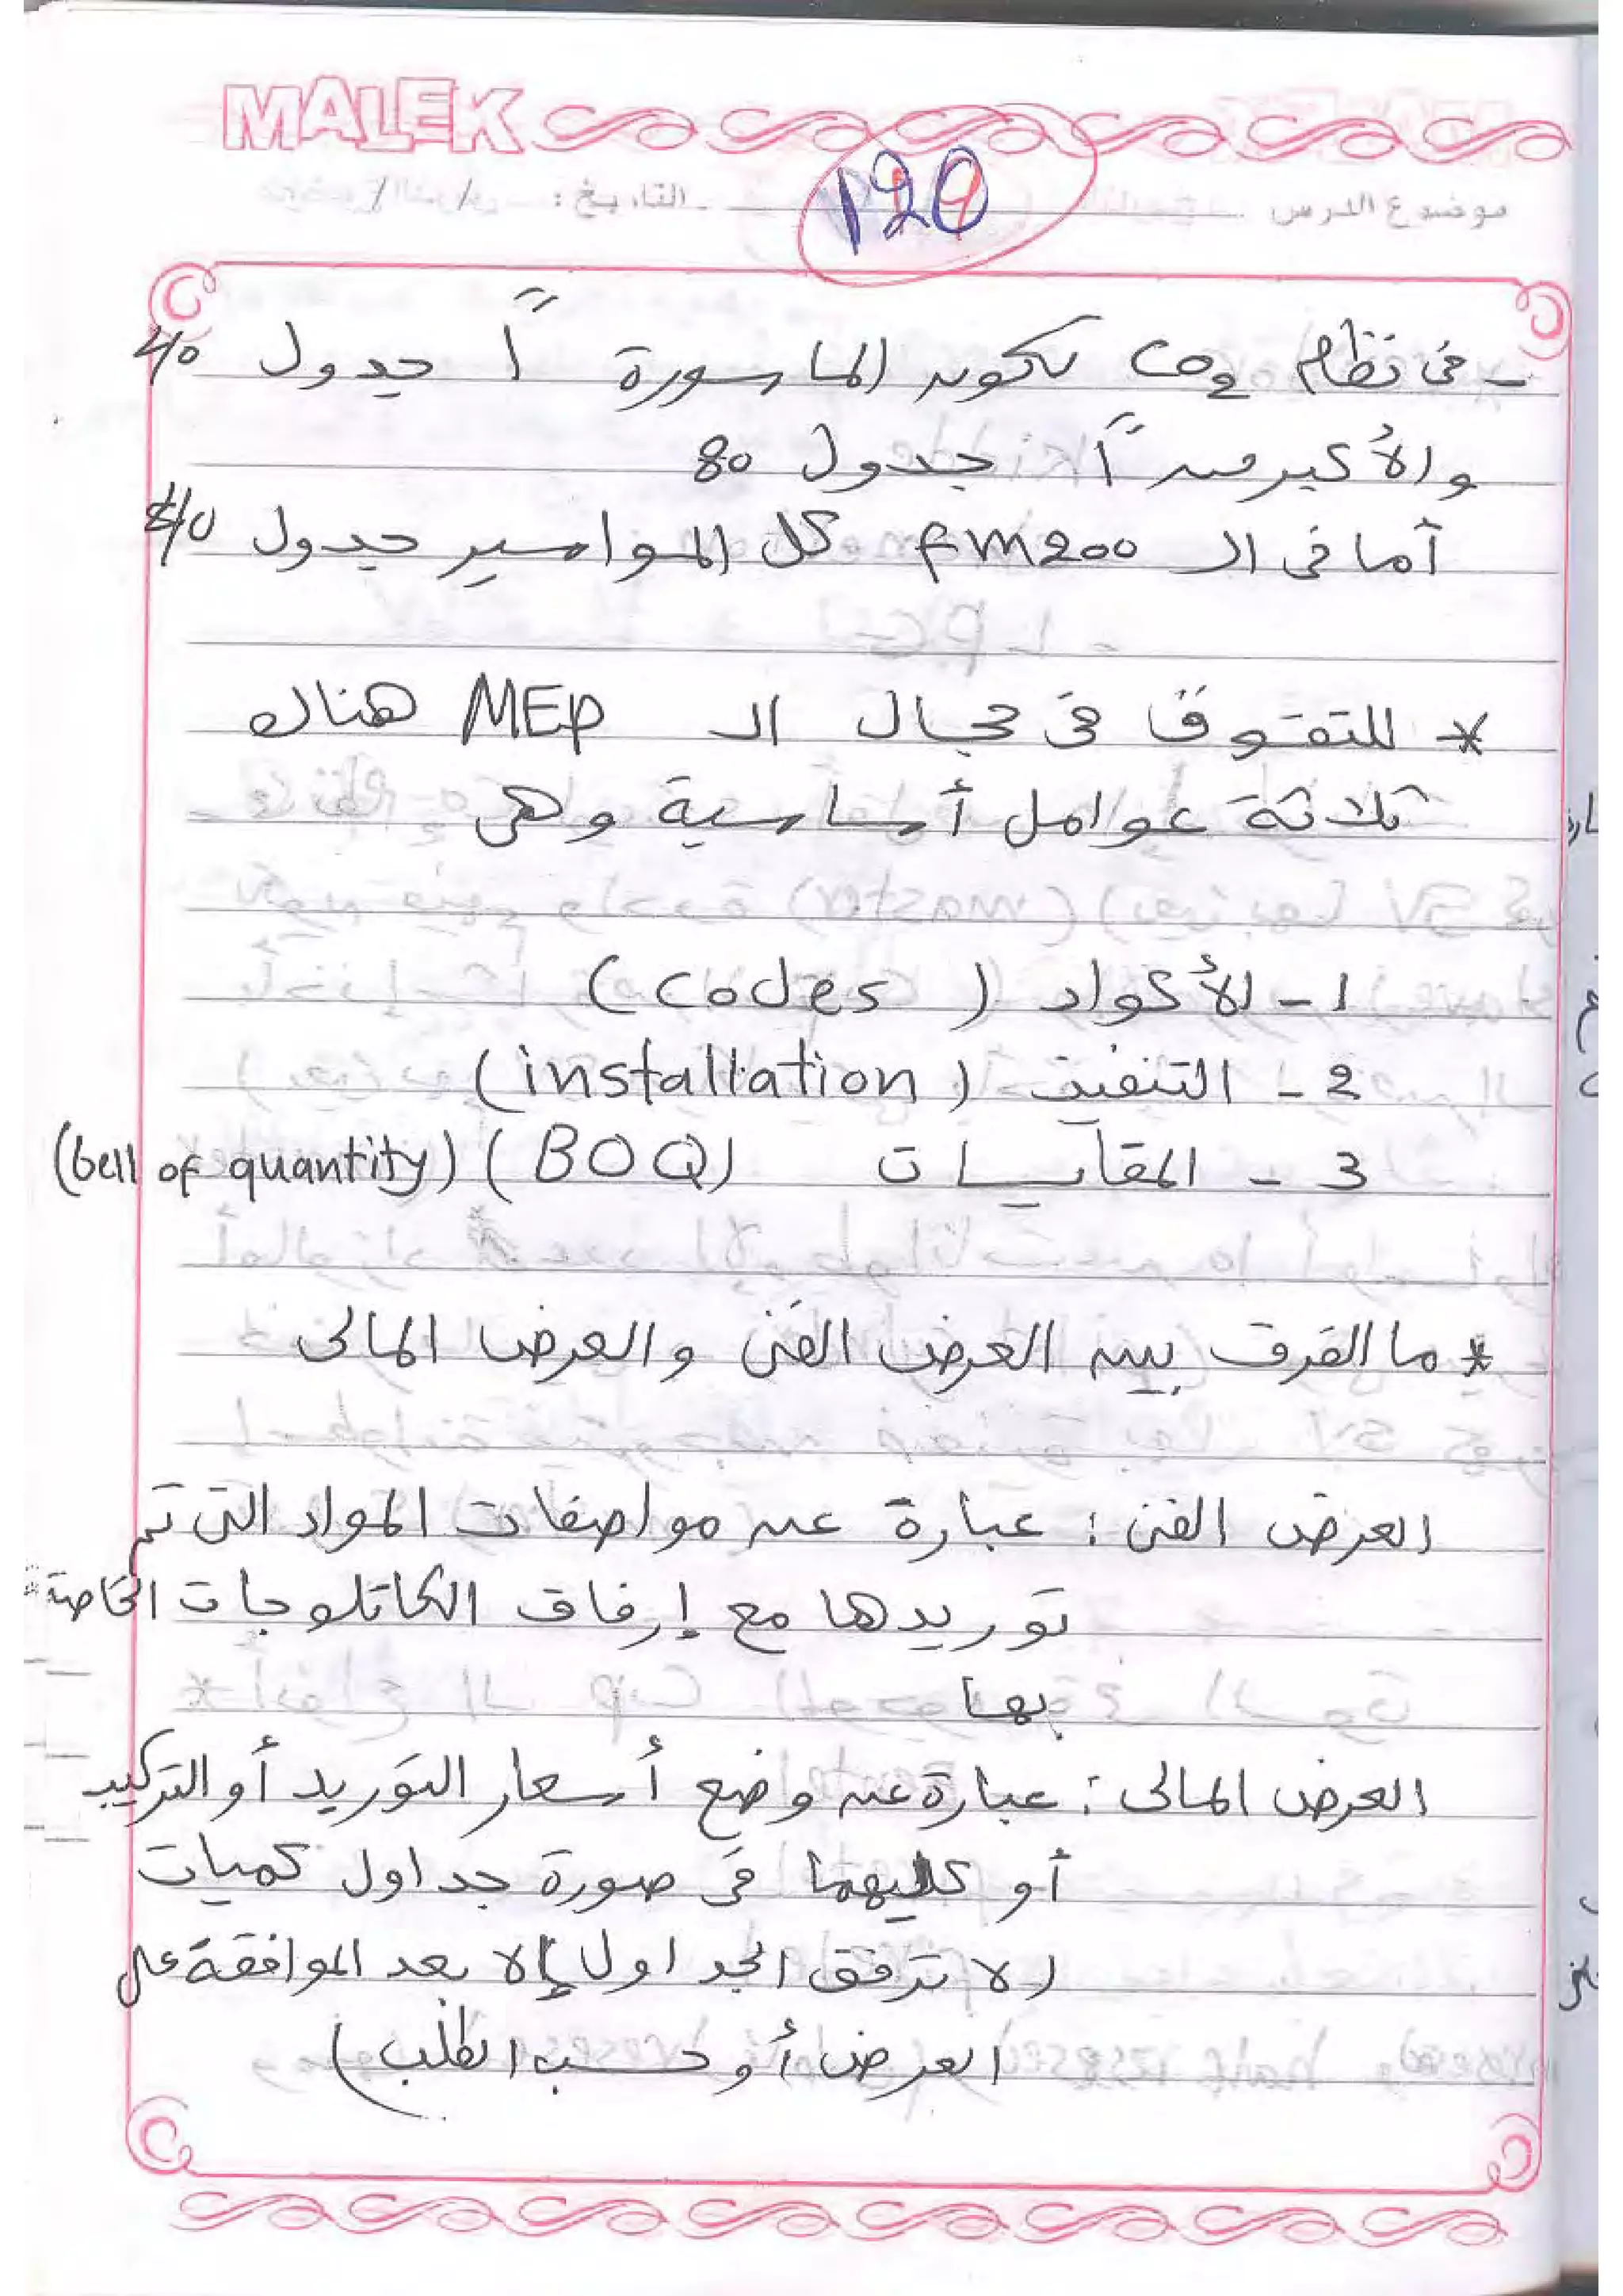 MALEK
موضوع الدرس التاريخ : / /
120
- فى نظام CO2 تكون الماسورة 1" جدول 40
والأكبر من 1" جدول 80
أما فى ال fm200 كل المواسير جدول 40
* للتفوق فى مجال ال MEP هناك
ثلاثة عوامل أساسية وهى
1 - الأكواد (codes)
2 - التنفيذ (installation)
3 - المقايسات (BOQ) (bell of quantity)
* ما الفرق بين العرض الفنى والعرض المالى
العرض الفنى : عبارة عن مواصفات المواد التى تم
توريدها مع إرفاق الكاتلوجات الخاصة
بها
العرض المالى : عبارة عن وضع أسعار التوريد أو التركيب
أو كليهما فى صورة جداول كميات
(لا ترفق الجداول إلا بعد الموافقة على
العرض أو حسب الطلب)